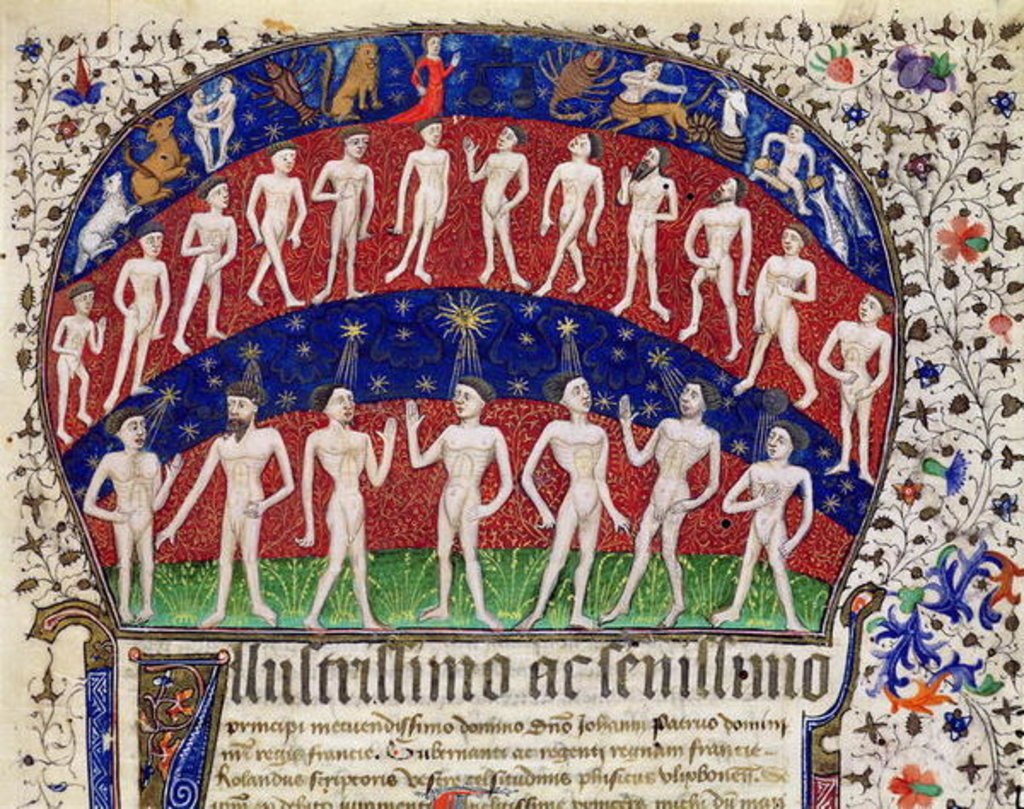 Illustrissimo ac senissimo
principi metuendissimo domino Dno Iohanni Patruo domini
nri regis francie. Gubernanti ac regenti regnum francie
Rolandus scriptoris vestre celsitudinis phisicus ulixbonen. De